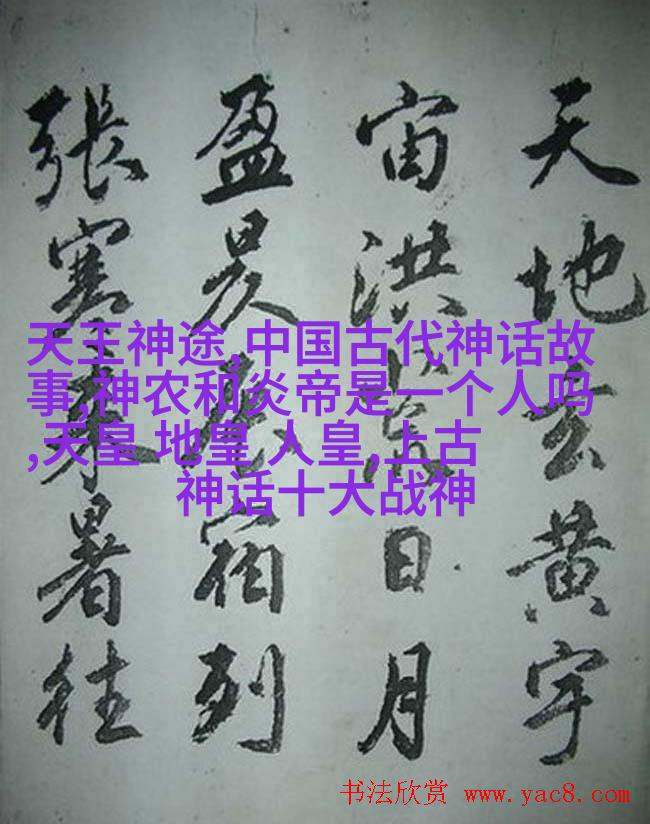 天地玄黄宇
宙洪荒日月
盈昃辰宿列
張寒来暑往
天王神途,中国古代神话故
事,神农和炎帝是一个人吗
,天皇 地皇 人皇,上古
神话十大战神
书法欣赏 www.yac8.com